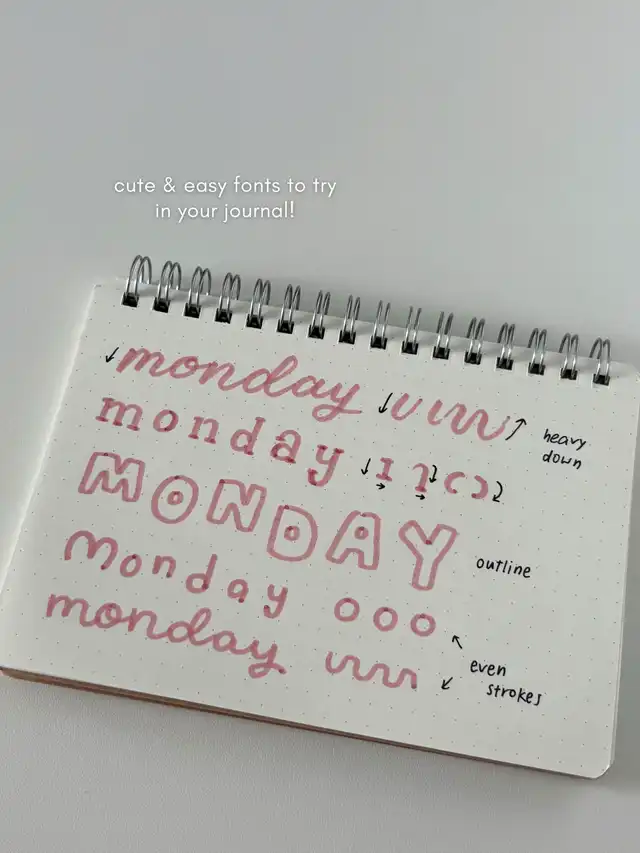 cute & easy fonts to try
in your journal!
monday
heavy
down
monday
MONDAY
outline
Monday
monday
even
strokes